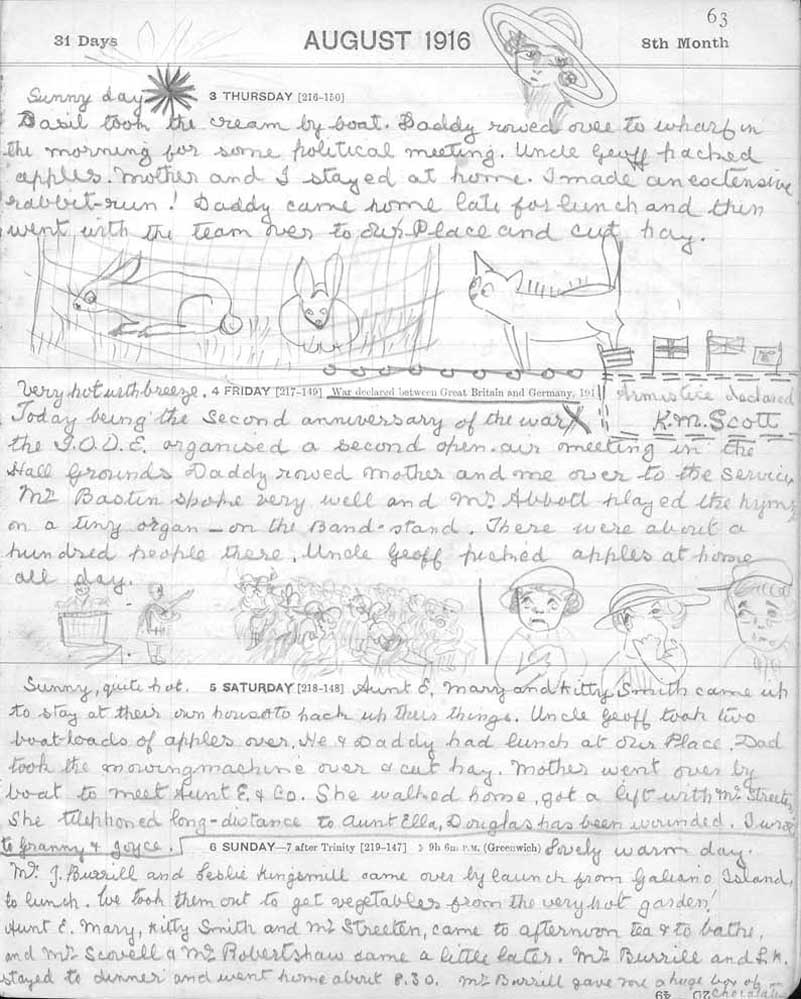 63
31 Days AUGUST 1916 8th Month
Sunny day 3 THURSDAY [216-150]
Basil took the cream by boat. Daddy rowed over to wharf in
the morning for some political meeting. Uncle Geoff packed
apples. Mother and I stayed at home. I made an extensive
rabbit-run! Daddy came home late for lunch and then
went with the team over to Our Place and cut hay.
Very hot with breeze. 4 FRIDAY [217-149] War declared between Great Britain and Germany, 191
Armistice declared
K.M. Scott
Today being the Second anniversary of the war X
the I.O.D.E. organised a second open-air meeting in the
Hall Grounds Daddy rowed Mother and me over to the service
Mr Bastin spoke very well and Mr. Abbott played the hymns
on a tiny organ - on the Band-stand. There were about a
hundred people there. Uncle Geoff picked apples at home
all day.
Sunny, quite hot. 5 SATURDAY [218-148] Aunt E, Mary and Kitty Smith came up
to stay at their own house to pack up their things. Uncle Geoff took two
boat-loads of apples over. He & Daddy had lunch at Our Place. Dad
took the mowingmachine over & cut hay. Mother went over by
boat to meet Aunt E. & Co. She walked home, got a lift with Mr Streeten
She telephoned long-distance to Aunt Ella, Douglas has been wounded. I wrote
to Granny & Joyce. 6 SUNDAY—7 after Trinity [219-147] 9h 6m P.M. (Greenwich) Lovely warm day.
Mr. J. Burrill and Leslie Kingsmill came over by launch from Galiano Island,
to lunch. We took them out to get vegetables from the very hot garden!
Aunt E. Mary, Kitty Smith and Mr Streeten, came to afternoon tea & to bathe,
and Mr. Scovell & Mr Robertshaw came a little later. Mr Burrill and L.K.
stayed to dinner and went home about 8.30. Mr Burrill gave me a huge box of
Chocolates